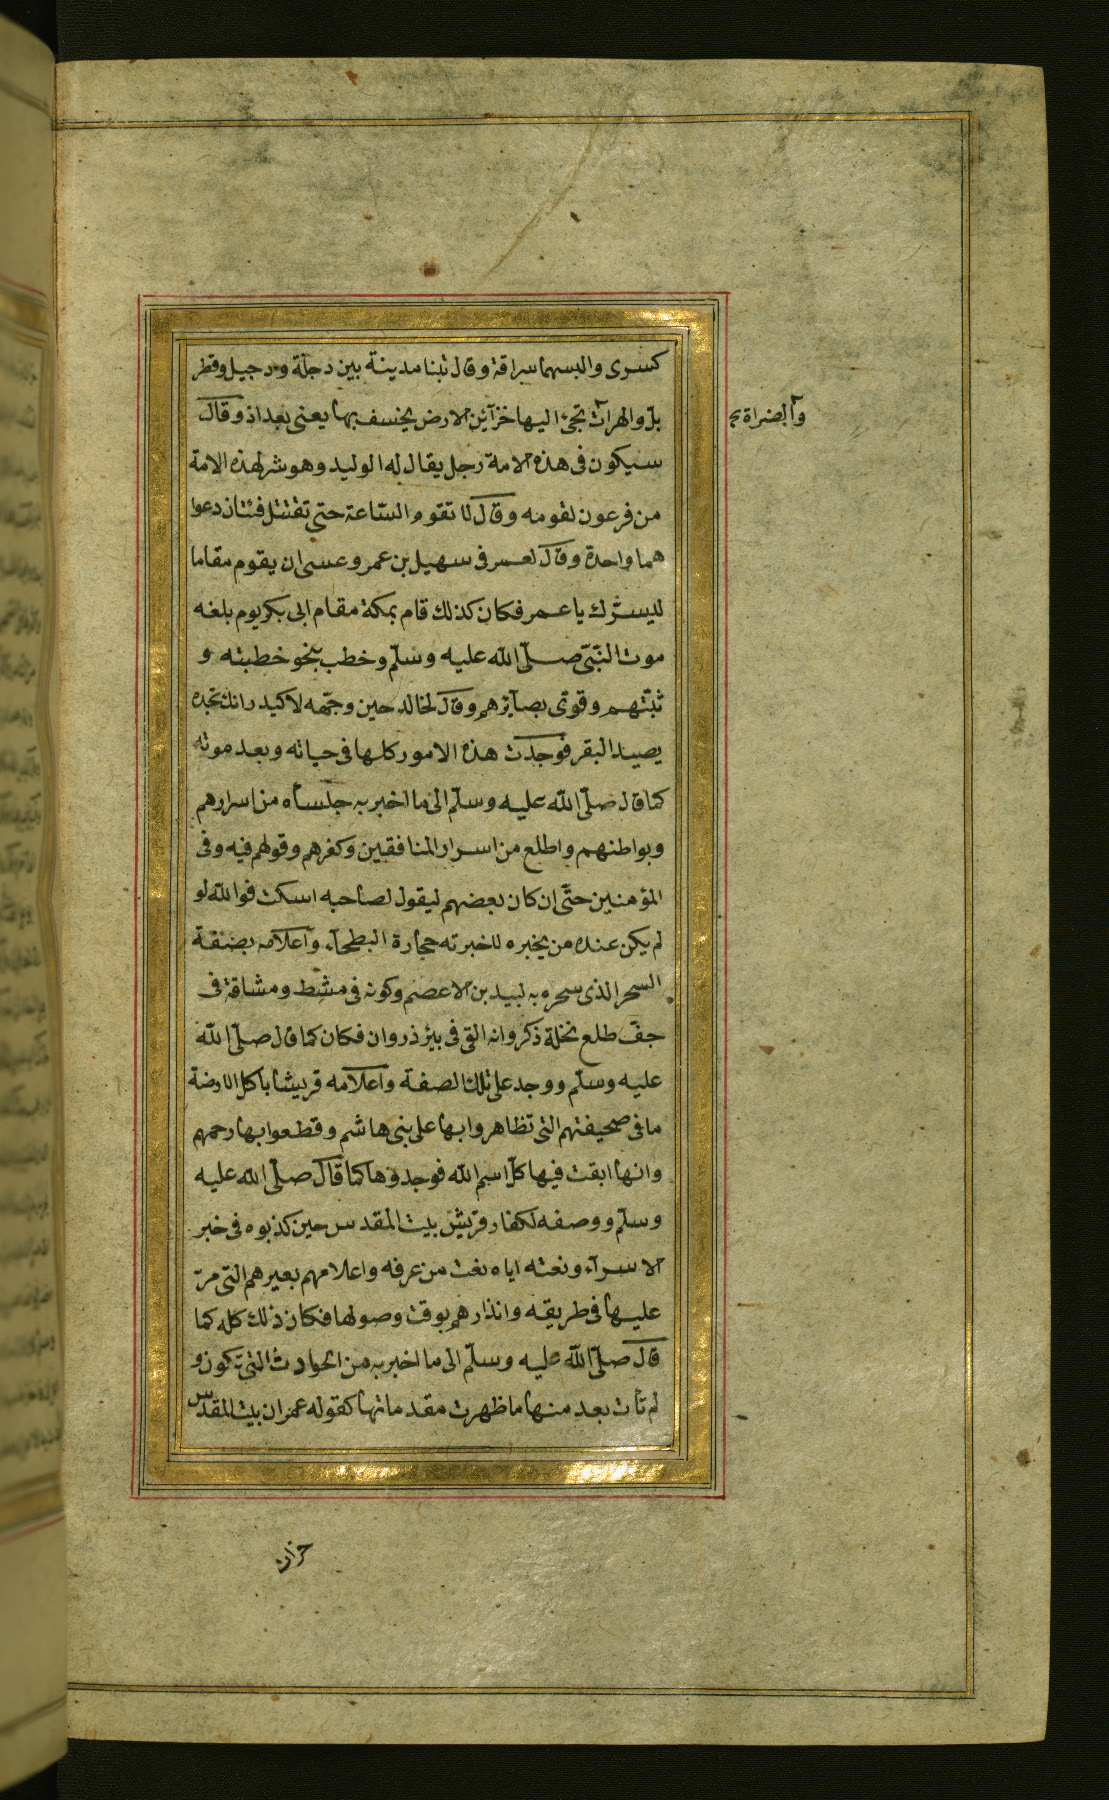 كسرى والبسهما سراقة وقال تبنا مدينة بين دجلة ودجيل وقطر
بل والهرات تجئ اليها خزآئن الارض يخسف بها يعنى بغداذ وقال
سيكون فى هذه الامة رجل يقال له الوليد وهو شر لهذه الامة
من فرعون لقومه وقال لا تقوم الساعة حتى تقتتل فئتان دعوا
هما واحدة وقال لعمر فى سهيل بن عمرو عسى ان يقوم مقاما
ليسرك يا عمر فكان كذلك قام بمكة مقام ابى بكر يوم بلغه
موت النّبىّ صلّى الله عليه وسلّم وخطب بنحو خطبته و
ثبّتهم وقوّى بصآئرهم وقال لخالد حين وجّهه لاكيدر انك تجده
يصيد البقر فوجدت هذه الامور كلها فى حياته وبعد موته
كما قال صلّى الله عليه وسلّم الى ما اخبر به جلسآه من اسرارهم
وبواطنهم واطلع من اسرار المنافقين وكفرهم وقولهم فيه وفى
المؤمنين حتّى ان كان بعضهم ليقول لصاحبه اسكت فوالله لو
لم يكن عنده من يخبره لاخبرته حجارة البطحآء وآعلامه بصفة
السحر الذى سحره به لبيد بن الاعصم وكونه فى مشط ومشاقة فى
جفّ طلع نخلة ذكر وانه القى فى بئر ذروان فكان كما قال صلّى الله
عليه وسلّم ووجد على تلك الصفة وآعلامه قريشا باكل الارضة
ما فى صحيفتهم التى تظاهروا بها على بنى هاشم وقطعوا بها رحمهم
وانها ابقت فيها كل اسم الله فوجدوها كما قال صلّى الله عليه
وسلّم ووصفه لكفار قريش بيت المقدس حين كذبوه فى خبر
الاسرآء ونعته اياه نعت من عرفه واعلامهم بعيرهم التى مرّ
عليها فى طريقه وانذارهم بوقت وصولها فكان ذلك كله كما
قال صلّى الله عليه وسلّم الى ما اخبر به من الحوادث التى تكون و
لم تأت بعد منها ما ظهرت مقدماتها كقوله عمران بيت المقدس
وآلصراة
خراب